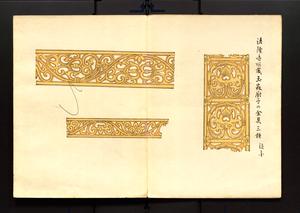 法隆寺所蔵玉蟲廚子の金具三種 縮小